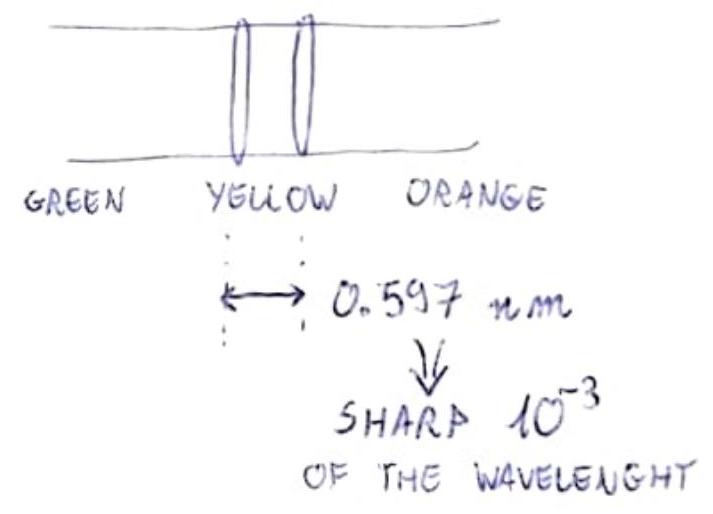 GREEN YELLOW ORANGE
0.597 nm
SHARP 10⁻³
OF THE WAVELENGHT